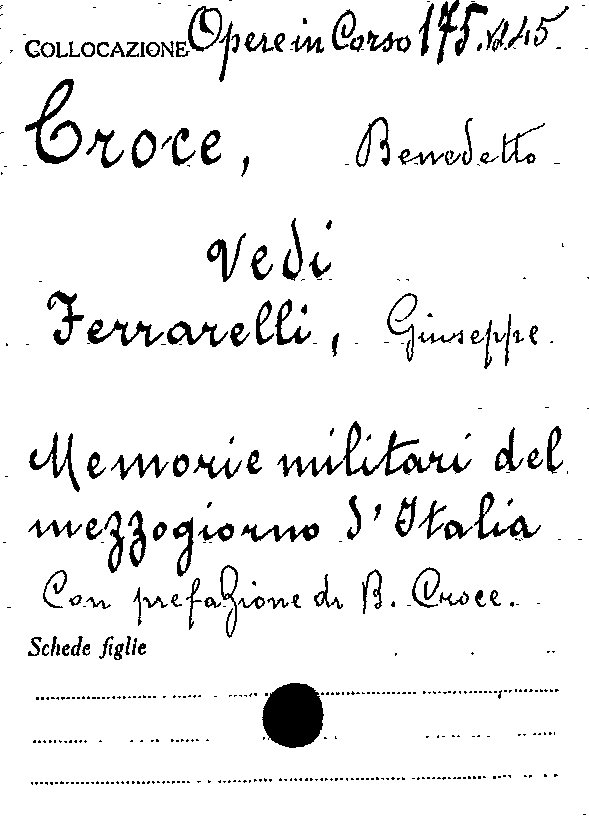 COLLOCAZIONE Opere in Corso 175.Vol.45
Croce, Benedetto
Vedi
Ferrarelli, Giuseppe
Memorie militari del
mezzogiorno d'Italia
Con prefazione di B. Croce.
Schede figlie